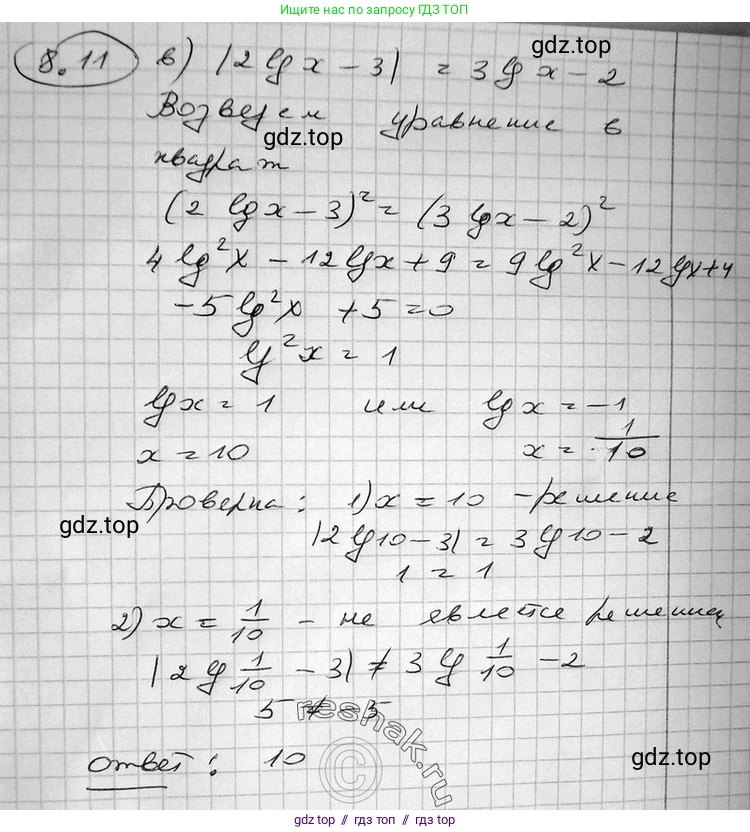 Решение подготовлено по запросу ГДЗ ТОП
8.11 в) |2 lg x - 3| = 3 lg x - 2
gdz.top
Возведем уравнение в
gdz.top
квадрат
(2 lg x - 3)² = (3 lg x - 2)²
4 lg² x - 12 lg x + 9 = 9 lg² x - 12 lg x + 4
-5 lg² x + 5 = 0
lg² x = 1
lg x = 1 или lg x = -1
x = 10 x = 1/10
Проверка: 1) x = 10 - решение
gdz.top
|2 lg 10 - 3| = 3 lg 10 - 2
1 = 1
2) x = 1/10 - не является решением
|2 lg 1/10 - 3| ≠ 3 lg 1/10 - 2
5 ≠ -5
reshak.ru
©
ответ: 10
gdz.top
gdz.top // gdz.top // gdz.top